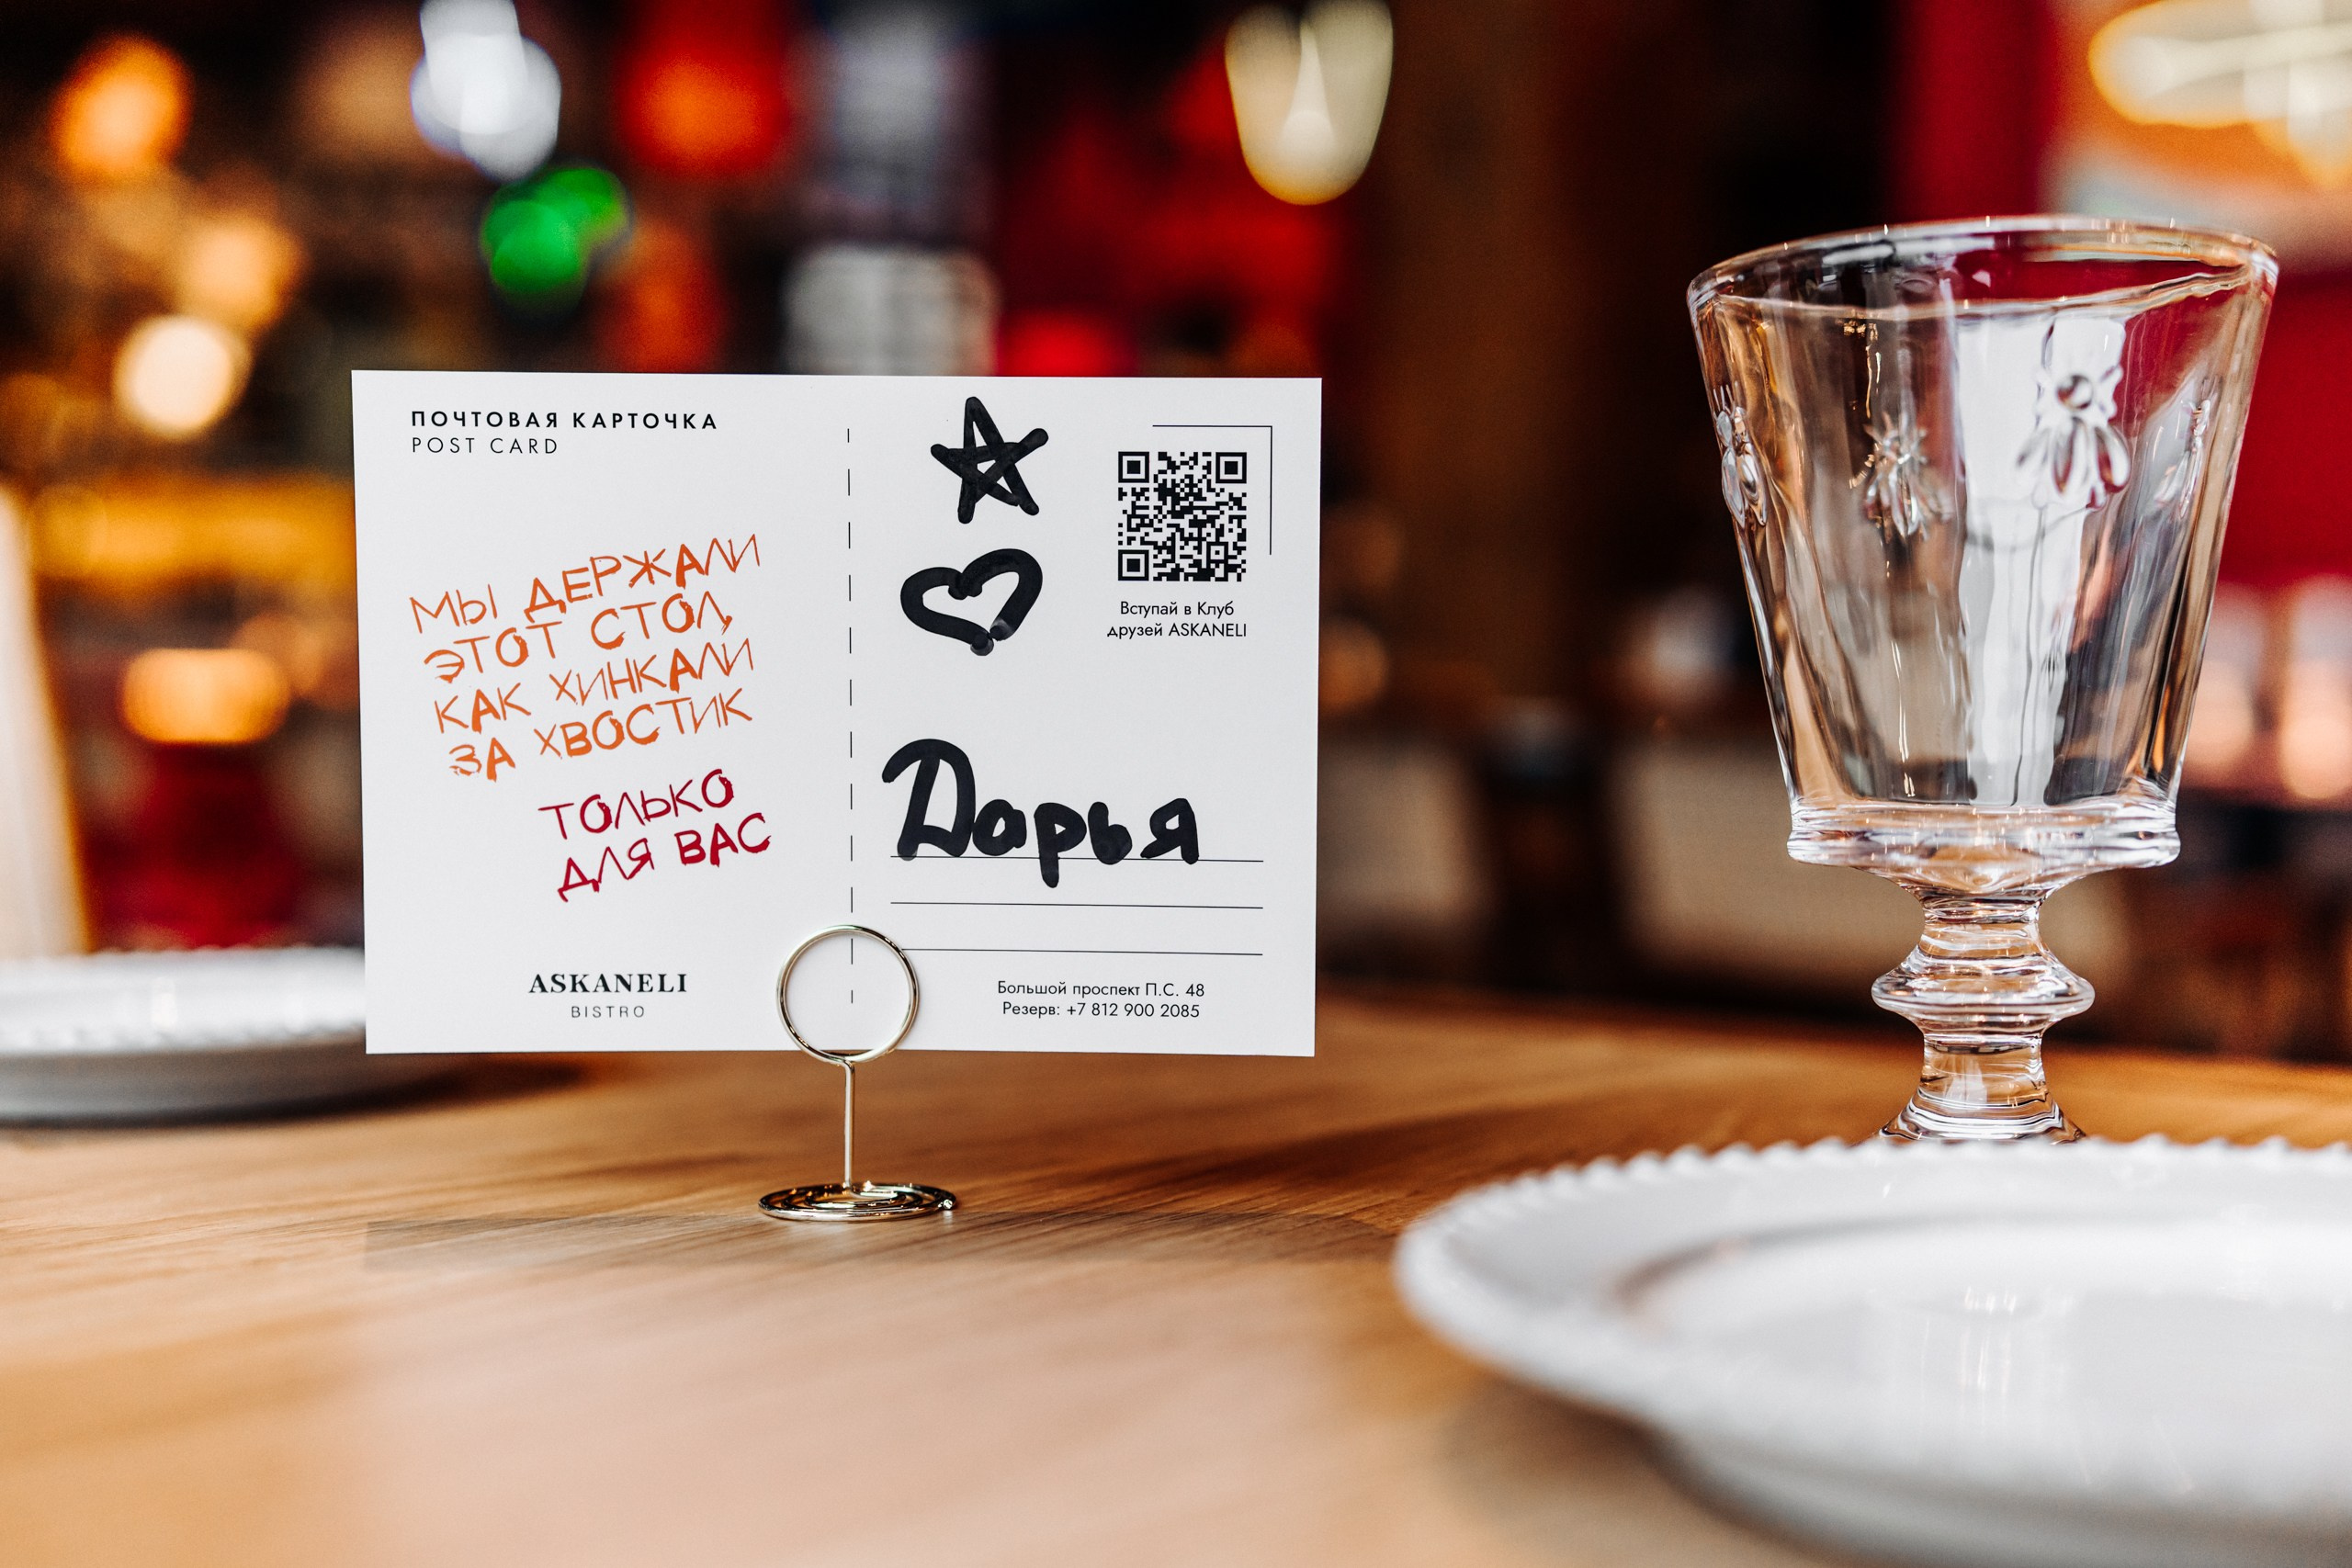 ПОЧТОВАЯ КАРТОЧКА
POST CARD
МЫ ДЕРЖАЛИ
ЭТОТ СТОЛ,
КАК ХИНКАЛИ
ЗА ХВОСТИК
ТОЛЬКО
ДЛЯ ВАС
ASKANELI
BISTRO
Вступай в Клуб
друзей ASKANELI
Дарья
Большой проспект П.С. 48
Резерв: +7 812 900 2085